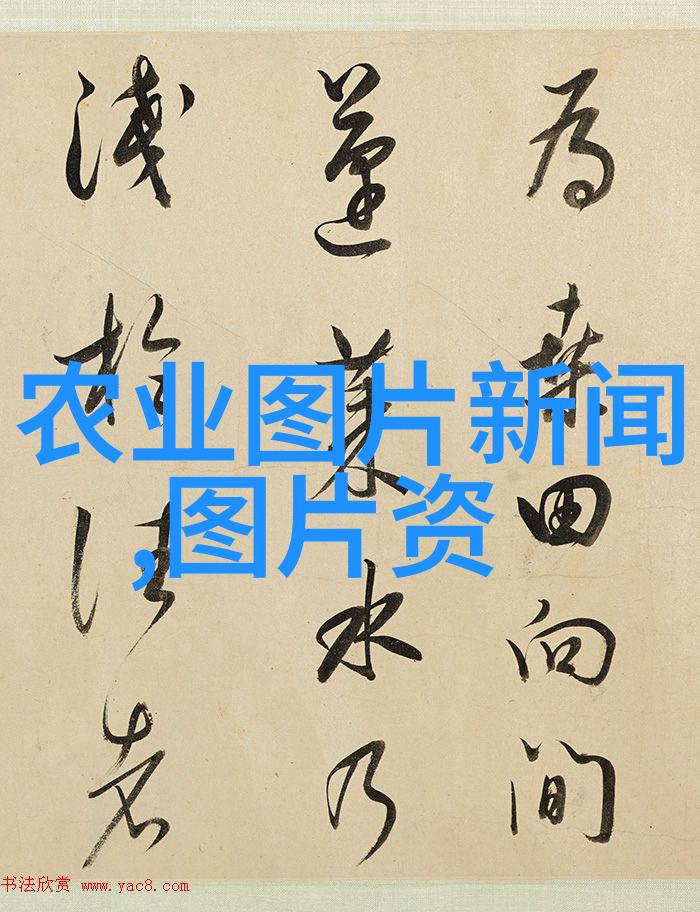 為桑田向間
蓬萊水乃
淺於往者
农业图片新闻
,图片资
书法欣赏 www.yac8.com